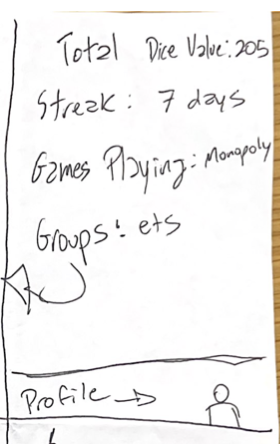 Total Dice Value: 205
Streak: 7 days
Games Playing: Monopoly
Groups: ets
Profile →